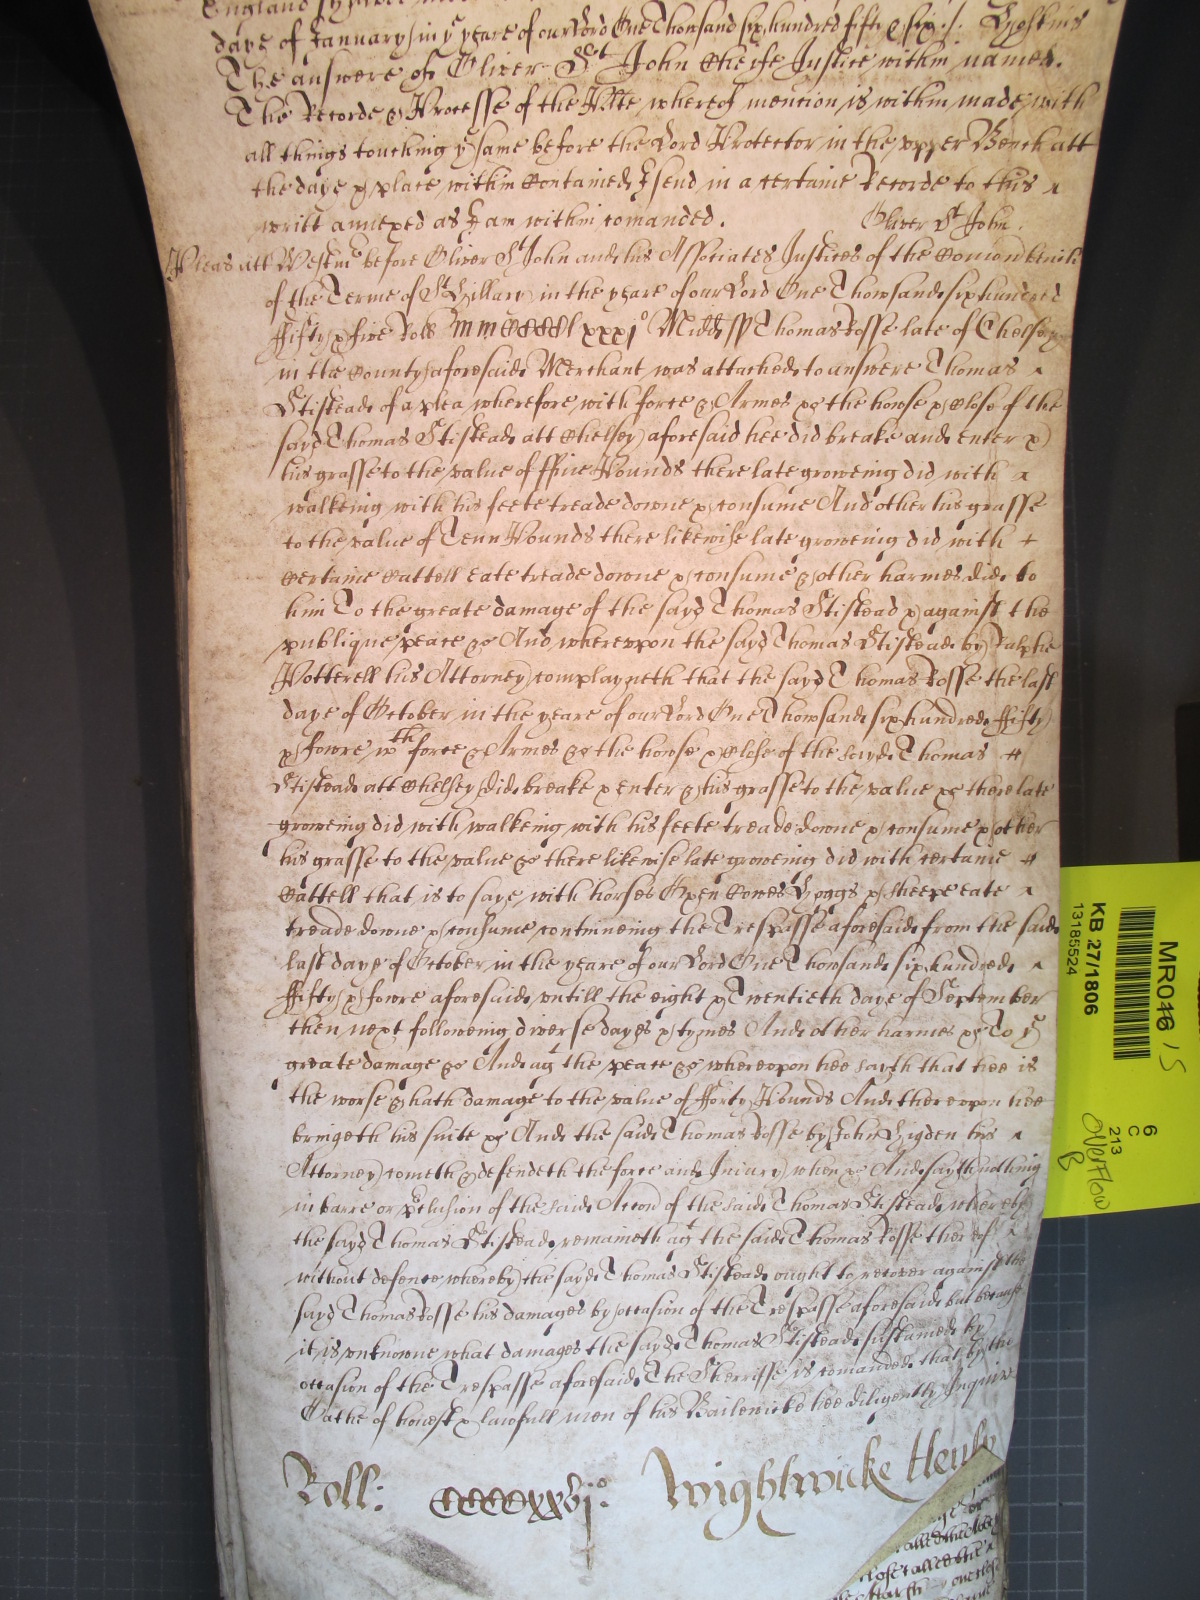 England
daye of January in ye yeare of our Lord One Thousand six hundred fifty & six ./. Hoskins
The answere of Oliver St John Cheife Justice within named.
The Recorde & Processe of the Plte whereof mention is within made with
all things touching ye same before the Lord Protector in the upper Bench att
the daye & place within Contained I send in a certaine Recorde to this
writt annexed as I am within comanded. Oliver St John
Pleas att Westmr before Oliver St John and his Associates Justices of the Comon bench
of the Terme of St Hillary in the yeare of our Lord One Thowsand six hundred
ffifty & five Roll mmCCCClxxxjo Midd ss Thomas Rosse late of Chelsey
in the County aforesaid Merchant was attached to answere Thomas
Stistead of a plea wherefore with force & Armes &c the howse & Close of the
sayd Thomas Stistead att Chelsey aforesaid hee did breake and enter &
his grasse to the value of ffive Pounds there late groweing did with
walkeing with his feete treade downe & consume And other his grasse
to the value of Tenn Pounds there likewise late groweing did with
Certaine Cattell Eate treade downe & consume & other harmes did to
him To the greate damage of the sayd Thomas Stistead & against the
publique peace &c And whereupon the sayd Thomas Stistead by Ralphe
Potterell his Attorney complayneth that the sayd Thomas Rosse the last
daye of October in the yeare of our Lord One Thowsand six hundred ffifty
& fowre wth force & Armes &c the howse & Close of the sayd Thomas
Stistead att Chelsey did breake & enter & his grasse to the value &c there late
groweing did with walkeing with his feete treade downe & consume & other
his grasse to the value &c there likewise late groweing did with certaine
Cattell that is to saye with horses Oxen Cowes Hoggs & sheepe eate
treade downe & consume continueing the Trespasse aforesaid from the said
last daye of October in the yeare of our Lord One Thowsand six hundred
ffifty & fowre aforesaid untill the eight & Twentieth daye of September
then next following diverse dayes & tymes And other harmes &c To ye
greate damage &c And agt the peace &c whereupon hee sayth that hee is
the worse & hath damage to the value of fforty Pounds And thereupon hee
bringeth his suite &c And the said Thomas Rosse by John Higden his
Attorney cometh & defendeth the force and Iniury when &c And sayth nothing
in barre or preclusion of the said Accon of the said Thomas Stistead whereby
the sayd Thomas Stistead remaineth agt the said Thomas Rosse thereof
without defence whereby the sayd Thomas Stistead ought to recover against the
sayd Thomas Rosse his damages by occasion of the Trespasse aforesaid but because
it is unknowne what damages the sayd Thomas Stistead susteined by
occasion of the Trespasse aforesaid The Sherriffe is comanded that by the
Oathe of honest & lawfull men of his Bailewicke hee diligently Inquire
Roll: CCCCxxvjo. Wightwicke Henly
MR046
KB 27/1806
13185524
6
C
213
Overflow
B